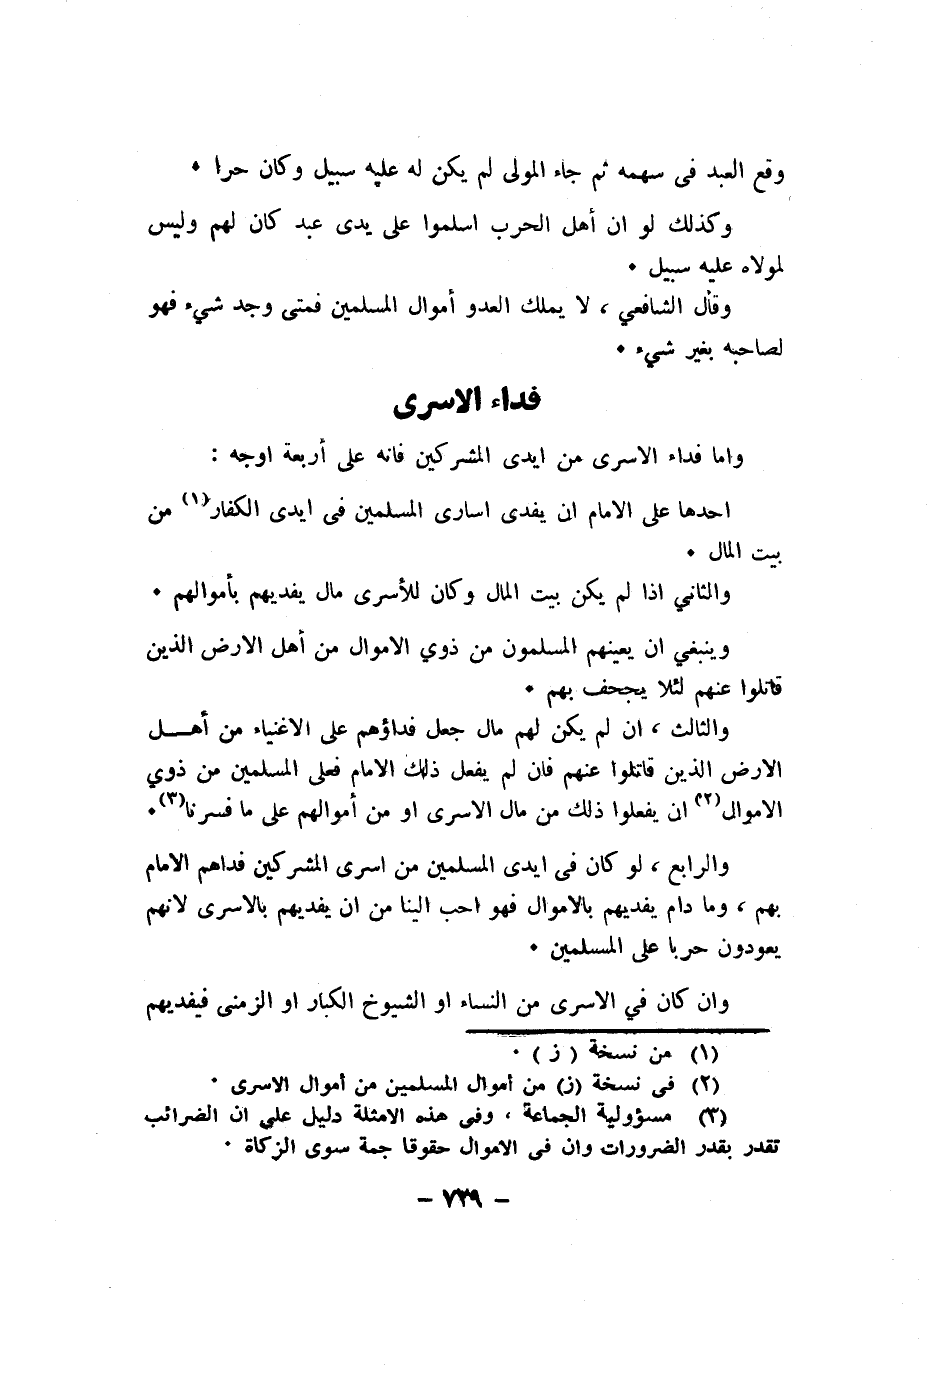 وقع العبد فى سهمه ثم جاء المولى لم يكن له عليه سبيل وكان حرا ٠
وكذلك لو ان أهل الحرب اسلموا على يدى عبد كان لهم وليس
لمولاه عليه سبيل ٠
وقال الشافعي ، لا يملك العدو أموال المسلمين فمتى وجد شيء فهو
لصاحبه بغير شيء ٠
فداء الاسرى
واما فداء الاسرى من ايدى المشركين فانه على أربعة اوجه :
احدها على الامام ان يفدى اسارى المسلمين فى ايدى الكفار(١) من
بيت المال ٠
والثاني اذا لم يكن بيت المال وكان للأسرى مال يفديهم بأموالهم ٠
وينبغي ان يعينهم المسلمون من ذوي الاموال من أهل الارض الذين
قاتلوا عنهم لئلا يجحف بهم ٠
والثالث ، ان لم يكن لهم مال جعل فداؤهم على الاغنياء من أهـــل
الارض الذين قاتلوا عنهم فان لم يفعل ذلك الامام فعلى المسلمين من ذوي
الاموال(٢) ان يفعلوا ذلك من مال الاسرى او من أموالهم على ما فسرنا(٣)٠
والرابع ، لو كان فى ايدى المسلمين من اسرى المشركين فداهم الامام
بهم ، وما دام يفديهم بالاموال فهو احب الينا من ان يفديهم بالاسرى لانهم
يعودون حربا على المسلمين ٠
وان كان في الاسرى من النساء او الشيوخ الكبار او الزمنى فيفديهم
(١) من نسخة ( ز ) ٠
(٢) فى نسخة (ز) من أموال المسلمين من أموال الاسرى ٠
(٣) مسؤولية الجماعة ، وفى هذه الامثلة دليل على ان الضرائب
تقدر بقدر الضرورات وان فى الاموال حقوقا جمة سوى الزكاة ٠
– ٧٣٩ –